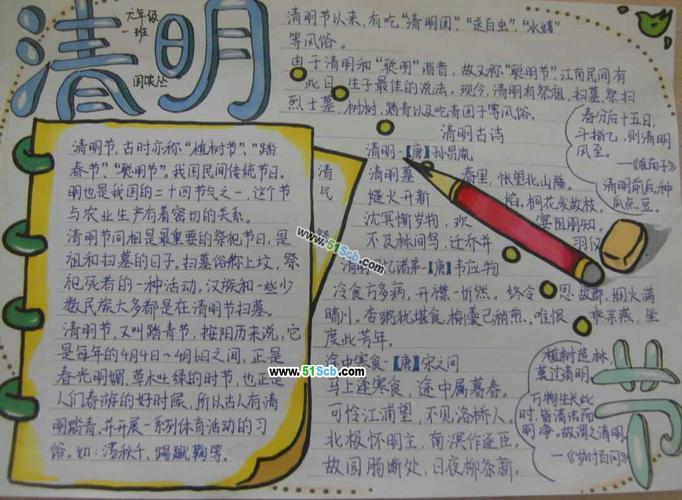 清明
六年级
一班
清明节以来,有吃“清明团”、
等风俗。
由于清明和“聪明”谐音,故又称“聪明节”,江南民间有
此日 生子最佳的说法。现今,清明有祭祖、扫墓、祭扫
烈士墓、植树、踏青以及吃青团子等风俗。
清明节,古时亦称“植树节”、“踏
春节”、“聪明节”。我国民间传统节日。
清明也是我国的二十四节气之一,这个节
与农业生产有着密切的关系。
清明节同相是最重要的祭祀节日,是
祖和扫墓的日子。扫墓俗称上坟,祭
祀死者的一种活动,汉族和一些少
数民族大多都是在清明节扫墓。
清明节,又叫踏青节,按阳历来说,它
是每年的4月4日~4月6日之间,正是
春光明媚,草木吐绿的时节,也正是
人们春游的好时候,所以古人有清
明踏青,并开展一系列体育活动的习
俗。如:荡秋千、蹴鞠等。
清
民
清明古诗
清明-【唐】孙昌胤
清明暮 春里,怅望北山陲。
燧火开新 焰,桐花发故枝。
沈冥惭岁物,欢 宴阻朋知。
不及林间鸟,迁乔并 羽仪
【唐】韦应物
冷食方多病,开襟一忻然。终令 思故郡,烟火满
晴川。杏粥犹堪食,榆羹已稍煎。唯恨 乖亲燕,坐
度此芳年。
途中寒食-【唐】宋之问
马上逢寒食,途中属暮春。
可怜江浦望,不见洛桥人。
北极怀明主,南溟作逐臣。
故园肠断处,日夜柳条新。
春分后十五日,
斗指乙,则清明
风至。
《淮南子》
清明前后,种
瓜点豆。
植树造林,
莫过清明
万物生长此
时,皆清洁而
明净。故谓之清明。
《岁时百问》
节
www.51Scb.com
www.51Scb.com